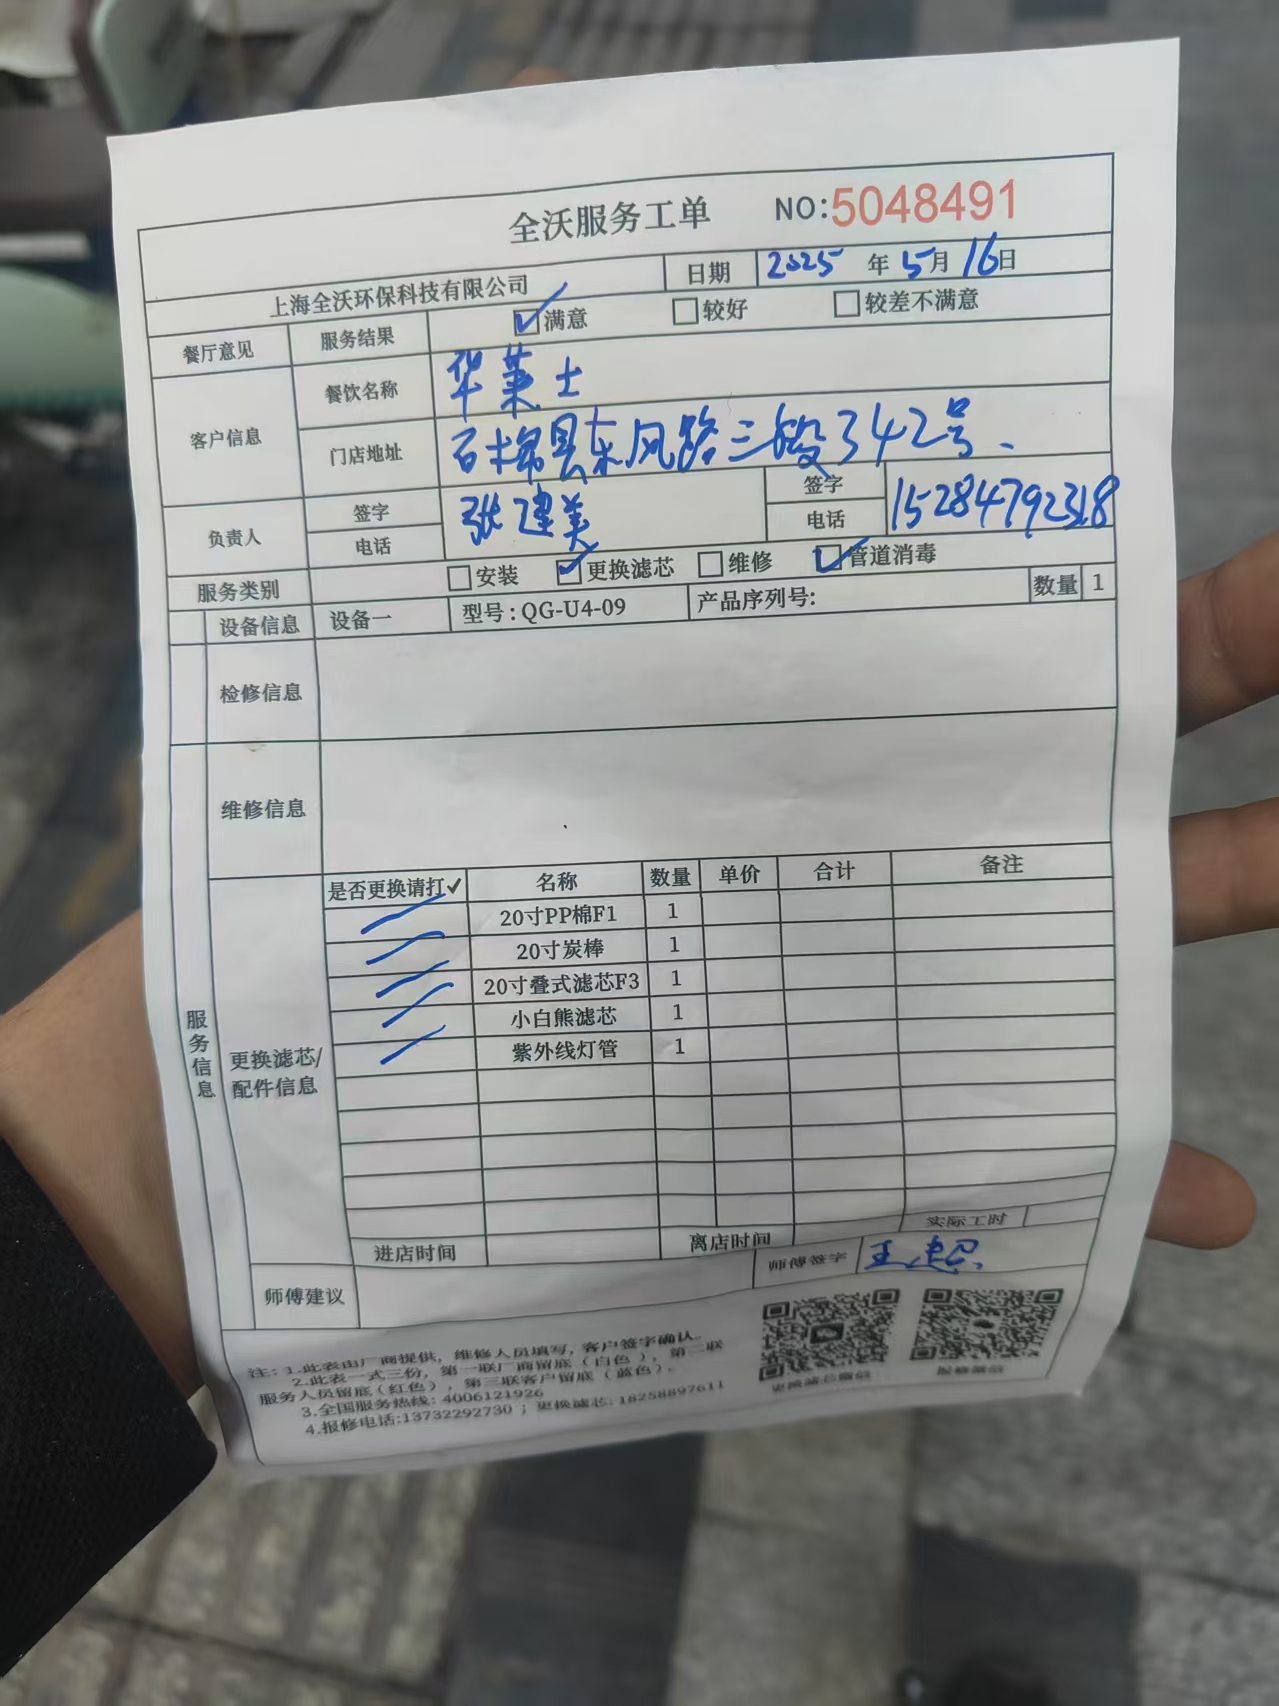 全沃服务工单 NO:5048491
上海全沃环保科技有限公司 日期 2025 年 5月 16日
餐厅意见 服务结果 ☑满意 □较好 □较差不满意
客户信息 餐饮名称 华莱士
门店地址 石棉县东风路三段342号、
负责人 签字 电话 张建美 签字 电话 15284792318
服务类别 □安装 ☑更换滤芯 □维修 ☑管道消毒
设备信息 设备一 型号:QG-U4-09 产品序列号: 数量 1
检修信息
维修信息
服务信息
更换滤芯/
配件信息
是否更换请打✓ 名称 数量 单价 合计 备注
20寸PP棉F1 1
20寸炭棒 1
20寸叠式滤芯F3 1
小白熊滤芯 1
紫外线灯管 1
实际工时
进店时间 离店时间
师傅建议 师傅签字
注: 1.此表由厂商提供, 维修人员填写, 客户签字确认.
2.此表一式三份, 第一联厂商留底(白色), 第二联
服务人员留底(红色), 第三联客户留底(蓝色).
3.全国服务热线: 4006121926
4.报修电话:13732292730 ; 更换滤芯: 18258897611
更换滤芯微信 报修微信